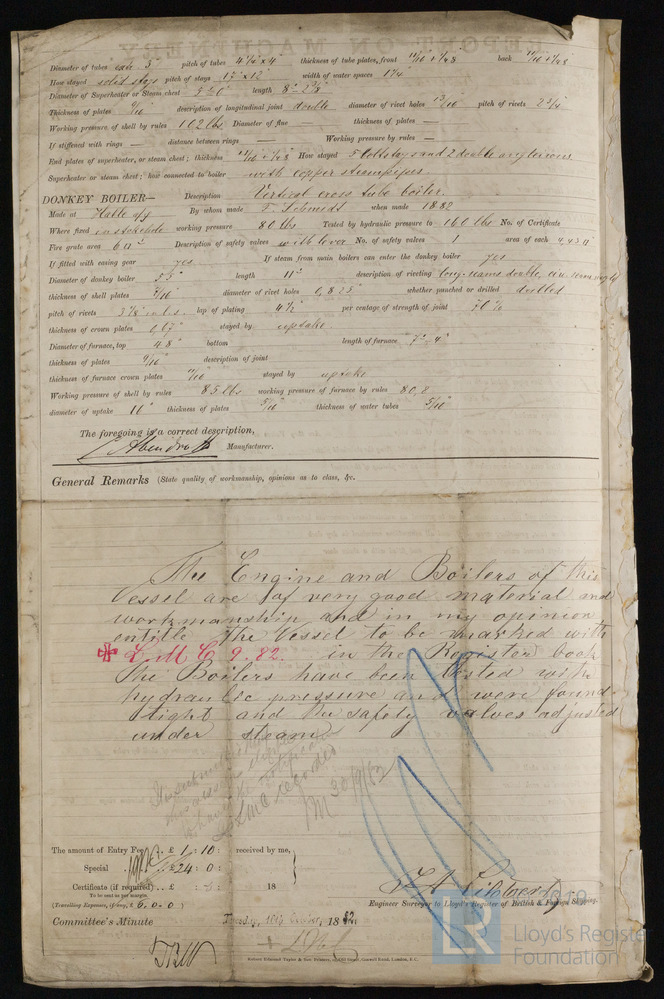 Diameter of tubes extr 3" pitch of tubes 4 1/4" x 4" thickness of tube plates, front 11/16 + 7/48 back 11/16 + 7/48
How stayed solid stays pitch of stays 12" x 12" width of water spaces 1 1/4"
Diameter of Superheater or Steam chest length 8' 2 7/8"
Thickness of plates 9/16 description of longitudinal joint double diameter of rivet holes 13/16 pitch of rivets 2 3/4"
Working pressure of shell by rules 102 lbs Diameter of flue — thickness of plates —
If stiffened with rings — distance between rings Working pressure by rules —
End plates of superheater, or steam chest; thickness How stayed 5 bolt stays and 2 double angle irons
Superheater or steam chest; how connected to boiler with copper steampipes
DONKEY BOILER— Description Vertical cross tube boiler.
Made at Halle a/S By whom made F. Schmidt when made 1882
Where fixed in stokehole working pressure 80 lbs Tested by hydraulic pressure to 160 lbs No. of Certificate
Fire grate area Description of safety valves with lever No. of safety valves 1 area of each 4,43 □"
If fitted with easing gear yes If steam from main boilers can enter the donkey boiler yes
Diameter of donkey boiler 5' 5" length 11' description of riveting long. seams double,
thickness of shell plates 7/16 diameter of rivet holes 0,825" whether punched or drilled drilled
pitch of rivets 3 1/8 lap of plating 4 1/2 per centage of strength of joint 70 %
thickness of crown plates 0,67" stayed by uptake
Diameter of furnace, top 4' 8" bottom length of furnace 7' 4"
thickness of plates 9/16 description of joint
thickness of furnace crown plates 11/16 stayed by uptake
Working pressure of shell by rules 85 lbs working pressure of furnace by rules 80,8
diameter of uptake 16" thickness of plates 5/16 thickness of water tubes 5/16
The foregoing is a correct description,
Manufacturer.
General Remarks (State quality of workmanship, opinions as to class, &c.
The Engine and Boilers of this
Vessel are of very good material and
workmanship and in my opinion
entitle the Vessel to be marked with
✠ L.M.C. 9.82. in the Register book
The Boilers have been tested with
hydraulic pressure and were found
tight and the safety valves adjusted
under steam.
LMC recorded
30/9/82
The amount of Entry Fee .. £ 1 : 10 : received by me,
Special .. £ 24 : 0 :
Certificate (if required) .. £ : : 18
To be sent as per margin.
(Travelling Expenses, if any, £ 6.0.0)
Engineer Surveyor to Lloyd's Register of British & Foreign Shipping.
Committee's Minute Tuesday, 10th October, 1882
LR
Lloyd's Register
Foundation